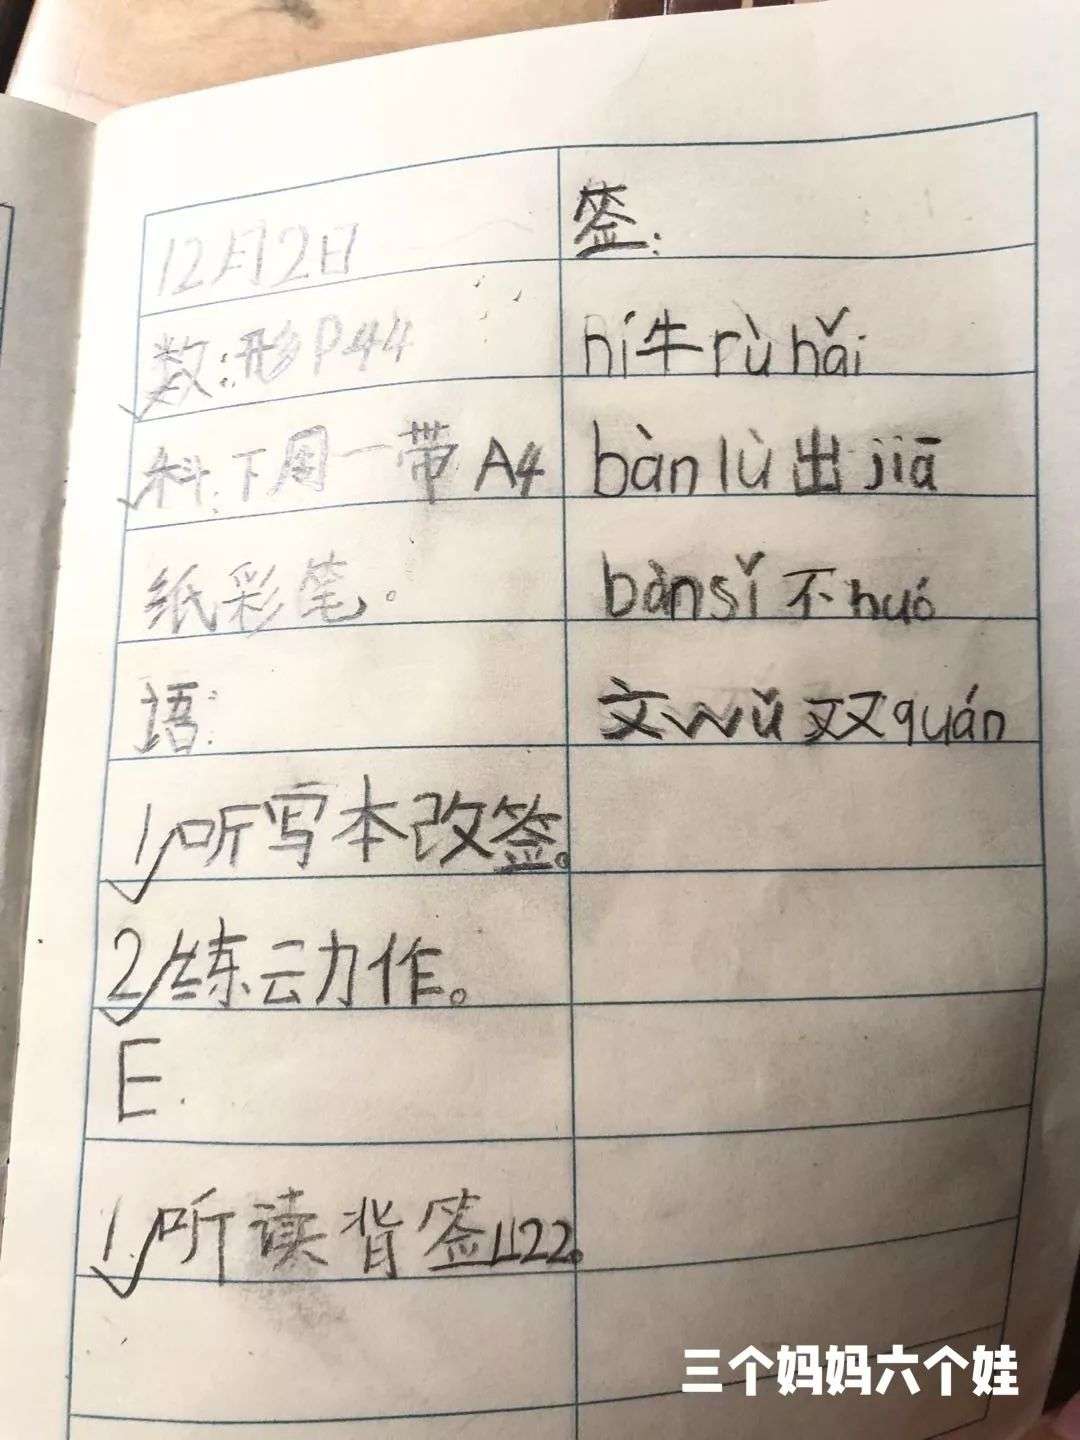 12月2日
数:形P44
科:下周一带A4
纸彩笔。
语:
1.听写本改签。
2.练云力作。
E.
1.听读背签L122。
签:
ní牛rù hǎi
bàn lù出jiā
bànsǐ不huó
文wǔ双quán
三个妈妈六个娃